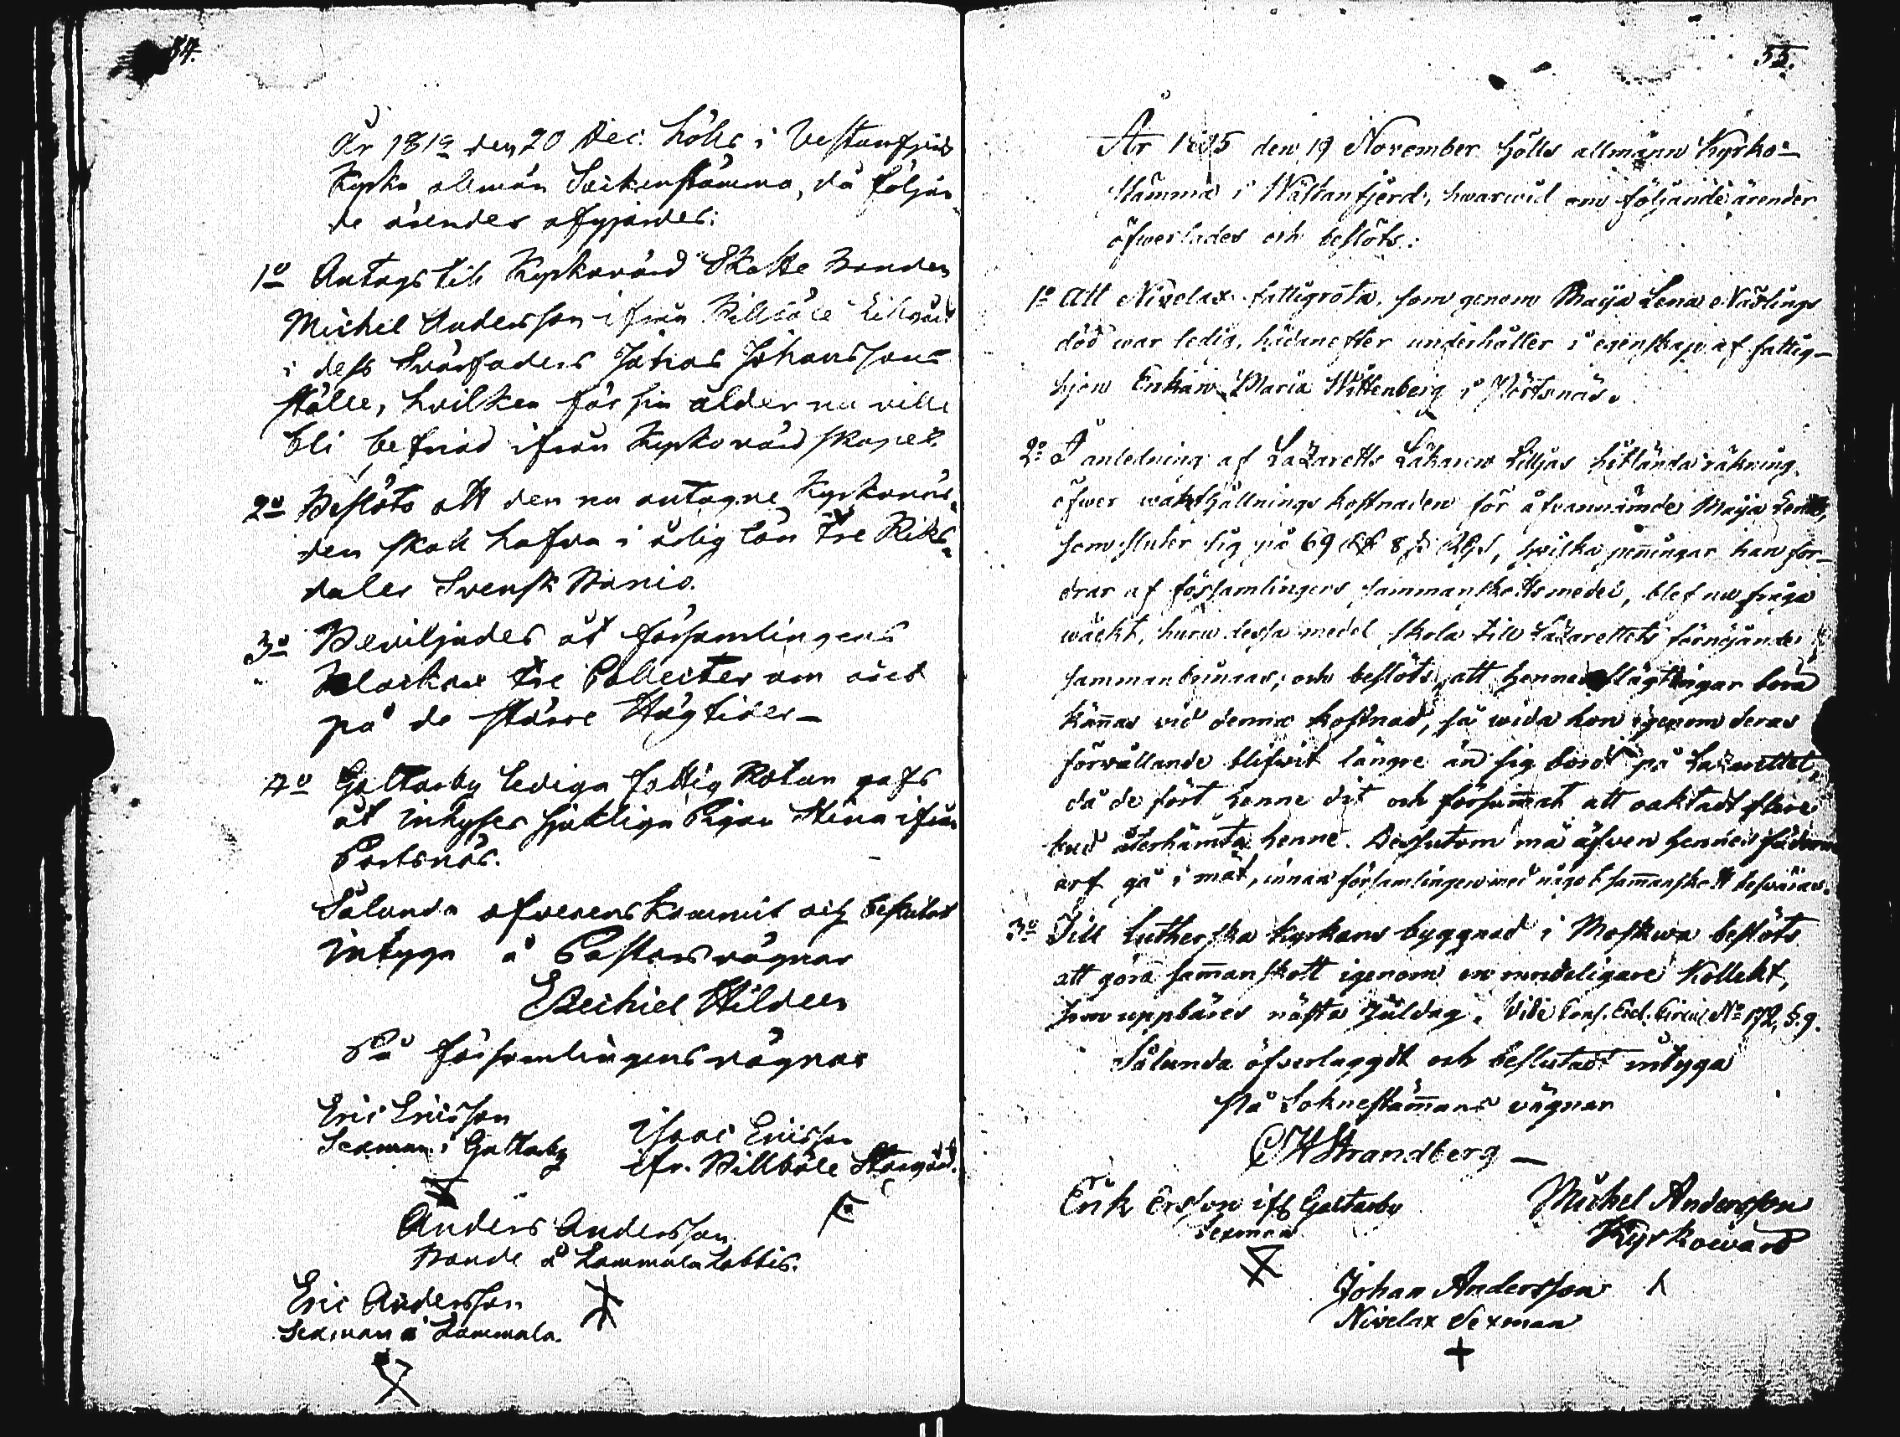 54.
År 1819 den 20 Dec. hölls i Vestanfjerds
Kyrko allmän Sockenstämma, då följan
de ärender afgjordes:
1o Antogs till Kyrkovärd Skatte Bonden
Michel Andersson ifrån Billböle Lillgård
i dess Svärfaders Johansson
ställe, hvilken för sin ålder nu ville
bli befriad ifrån Kyrkovärdskapet.
2o Beslöts att den nu antagne Kyrkovär-
den skall hafva i årlig lön Tre Riks-
daler Svensk Banco.
3o Beviljades åt församlingens
Klockare tre Collecter om året
på de större Högtider –
4o Galtarby lediga fattig Rotan gafs
åt Inhyses sjukliga Pigan Stina ifrån
Pörtsnäs.
Sålunda öfverenskommit och beslutat
intyga å Pastors vägnar
Ezechiel Hildeen
På församlingens vägnar
Eric Ericsson
Sexman i Galtarby
Isaac Ericsson
ifr. Billböle Storgård.
Anders Andersson
Bonde å Lammala Labbis.
Eric Andersson
Sexman å Lammala.
55.
År 1825 den 19 November hölls allmänn Kyrko-
stämma i Wästanfjerd, hwarwid om följande ärender
öfwerlades och beslöts:
1o Att Nivelax fattigrota, som genom Maija Lena
död war ledig, hädanefter underhåller i egenskap af fattig-
hjon Enkan Maria Wittenberg i Pörtsnäs.
2o I anledning af Lazaretts Läkaren Lilljas hitsända räkning
öfwer kostnaden för åfvannämde Maija Lena,
som sluter sig på 69 8 hwilka penningar han for-
drar af församlingens sammanskottsmedel, blef nu fråga
wäckt, huru dessa medel skola till Lazarettets förnöjande
sammanbringas; och beslöts, att hennes slägtingar bora
kännas vid denna kostnad, så wida hon igenom deras
förvållande blifwit längre än sig bordt på Lazarettet,
då de fört henne dit och försummat att oaktadt flere
bud återhämta henne. Dessutom må äfven hennes fäderne
arf gå i mät, innan församlingen med något sammanskott besväras.
3o Till Lutherska kyrkans byggnad i Moskwa beslöts
att göra sammanskott igenom en Kollekt,
som uppbäres nästa Juldag. Vide Cons. Eccl. Circul. No 172, §. 9.
Sålunda öfverlaggdt och beslutadt intyga
På Soknestämmans vägnar
Strandberg –
Erik Ersson ifr Galtarby
Sexman
Michel Andersson
Kyrkowärd
Johan Andersson
Nivelax Sexman